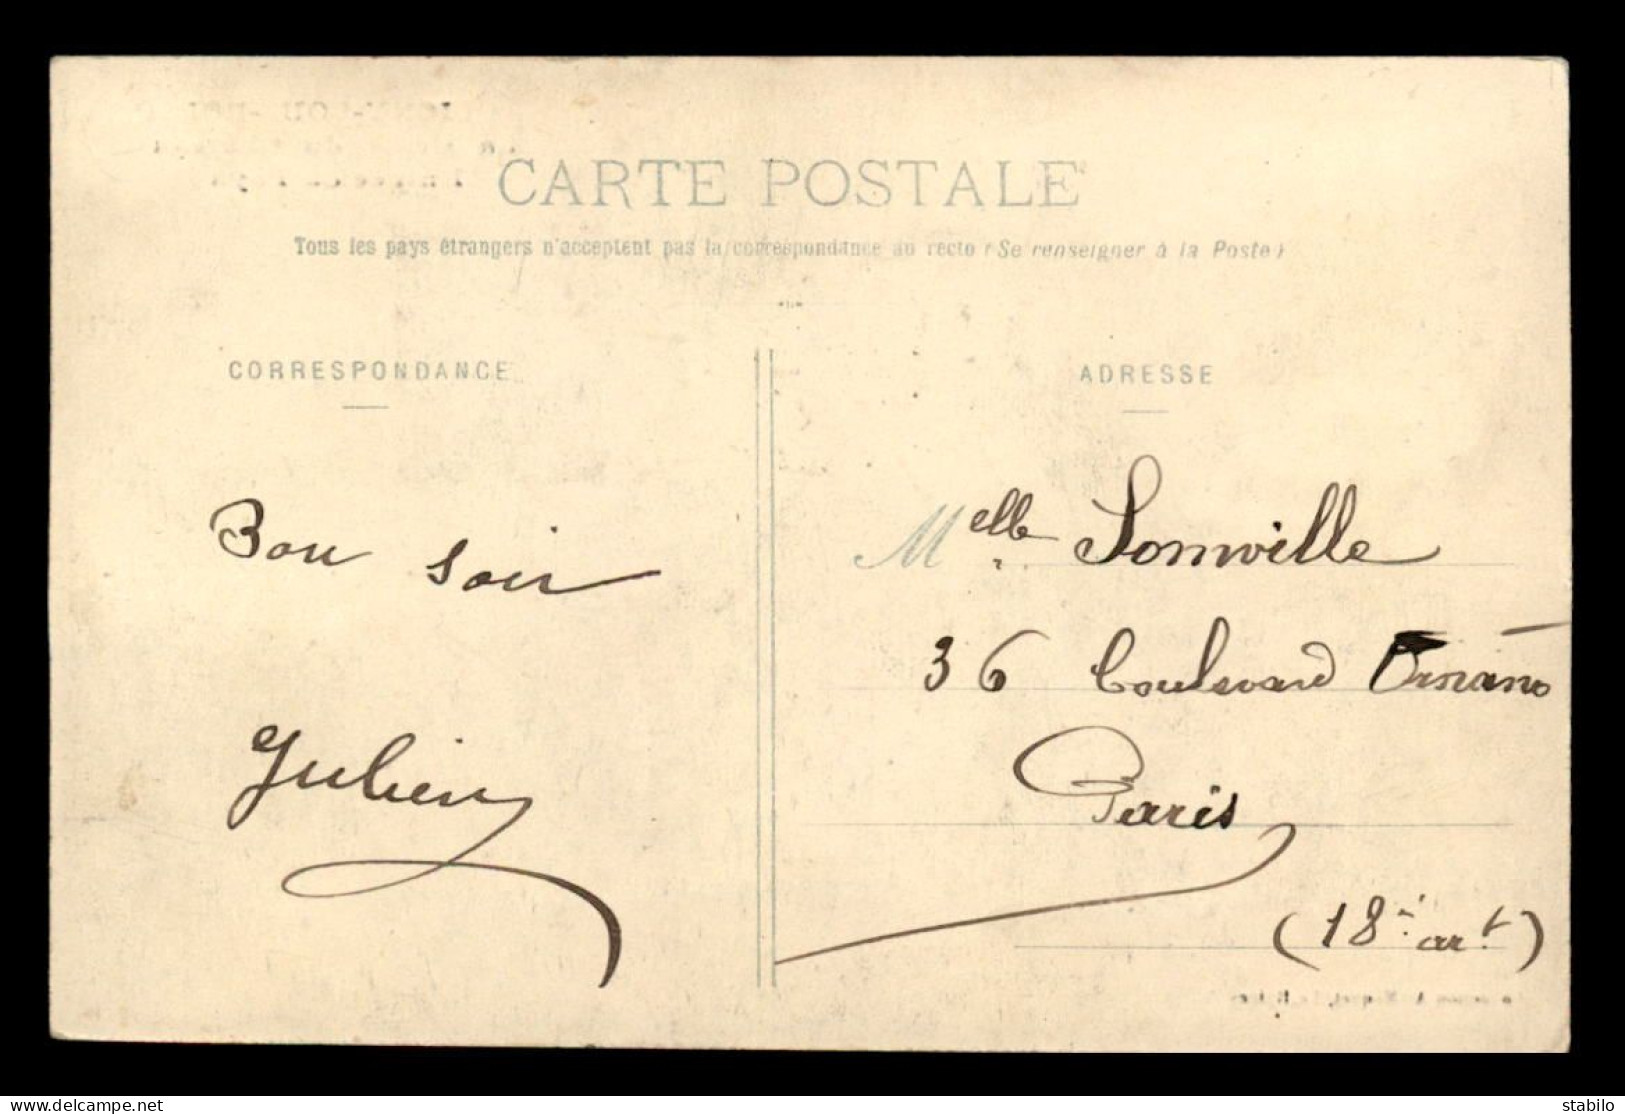 CARTE POSTALE
Tous les pays étrangers n'acceptent pas la correspondance au recto (Se renseigner à la Poste)
CORRESPONDANCE
ADRESSE
Bon soir
Julien
Melle Sonville
36 boulevard Ornano
Paris
(18e art)
www.delcampe.net
stabilo